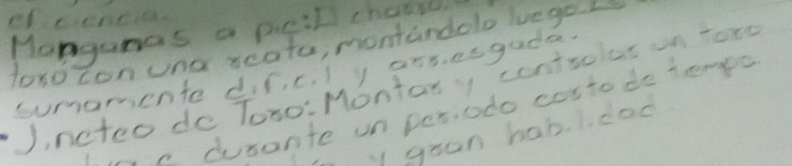 eficiencia.
Manganas a pie: El charro
toro con una reata, montándolo luego. Es
sumamente difícil y arriesgada.
• Jineteo de Toro: Montar y controlar un toro
durante un periodo corto de tiempo
y gran habilidad.